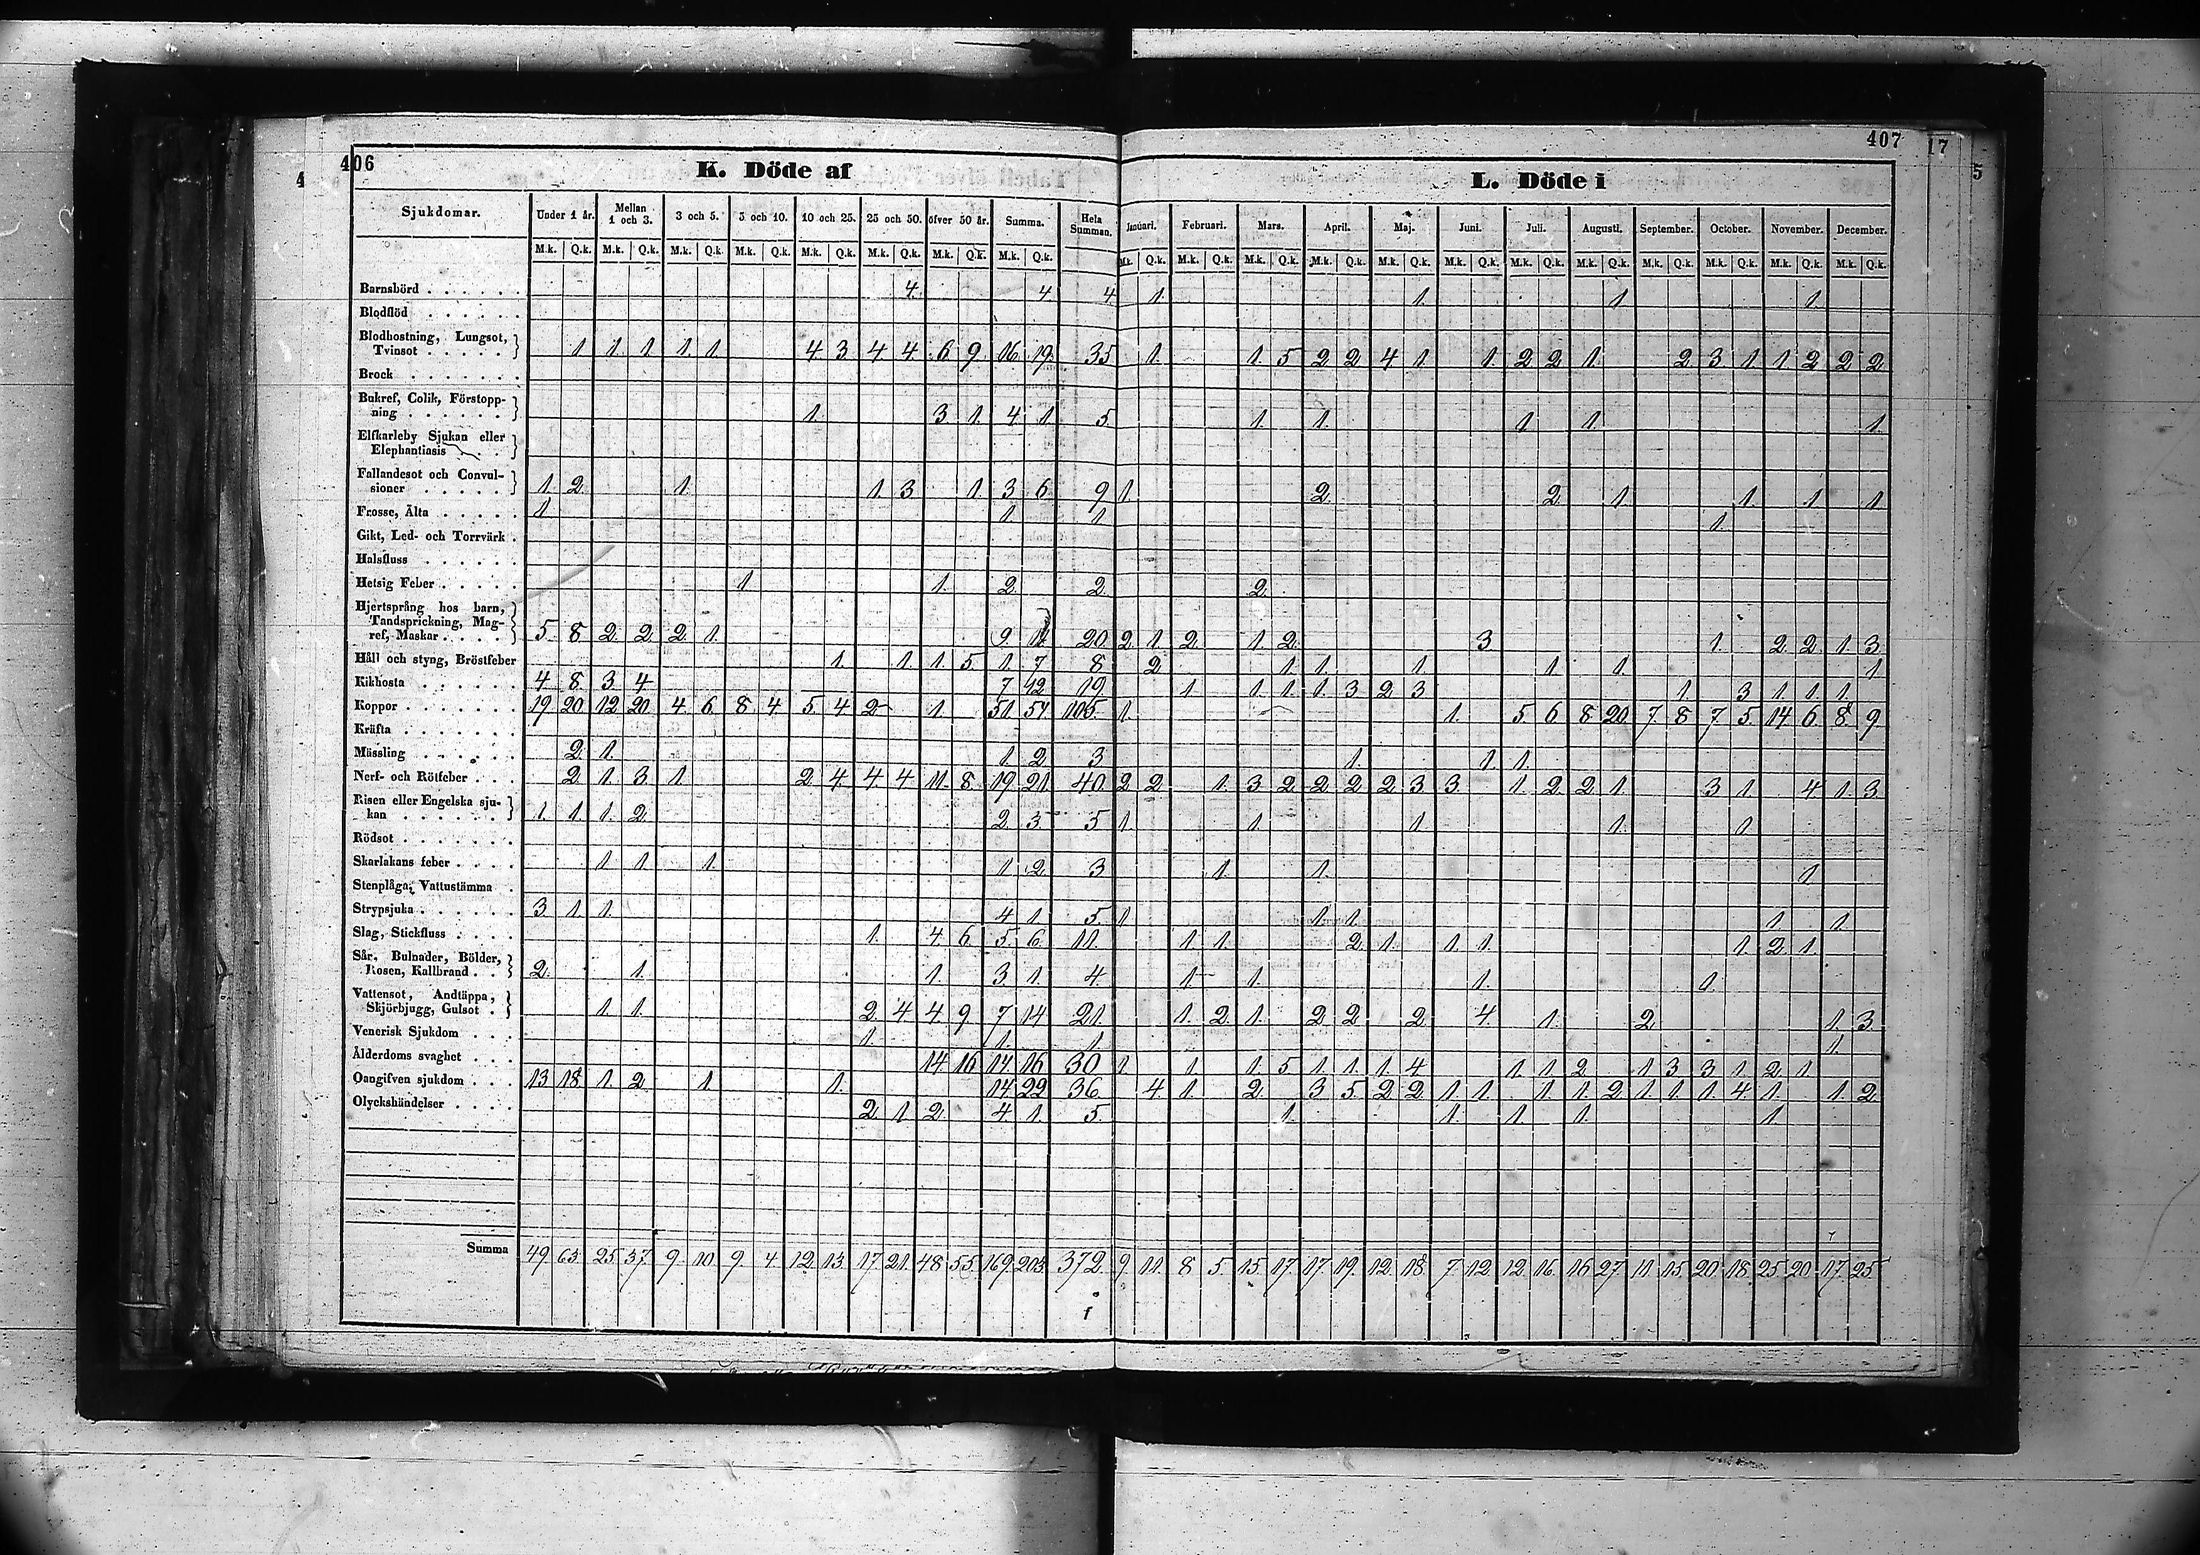 406
407
17
4
5
K. Döde af
L. Döde i
Sjukdomar. Under 1 år. Mellan 1 och 3. 3 och 5. 5 och 10. 10 och 25. 25 och 50. öfver 50 år. Summa. Hela Summan. Januari. Februari. Mars. April. Maj. Juni. Juli. Augusti. September. October. November. December.
M.k. Q.k. M.k. Q.k. M.k. Q.k. M.k. Q.k. M.k. Q.k. M.k. Q.k. M.k. Q.k. M.k. Q.k. M.k. Q.k. M.k. Q.k. M.k. Q.k. M.k. Q.k. M.k. Q.k. M.k. Q.k. M.k. Q.k. M.k. Q.k. M.k. Q.k. M.k. Q.k. M.k. Q.k. M.k. Q.k.
Barnsbörd 4. 4 4 1. 1. 1 1.
Blodflöd
Blodhostning, Lungsot,
Tvinsot 1 1. 1 1. 1. 4 3 4 4 6 9. 16. 19. 35 1. 1. 5 2 2 4. 1 1. 2 2 1. 2 3. 1 1 2 2 2
Brock
Bukref, Colik, Förstopp-
ning 1. 3 1. 4. 1. 5. 1. 1. 1 1. 1.
Elfkarleby Sjukan eller
Elephantiasis
Fallandesot och Convul-
sioner 1. 2. 1. 1. 3 1. 3 6. 9 1. 2. 2 1. 1. 1. 1
Frosse, Älta 1 1. 1 1.
Gikt, Led- och Torrvärk
Halsfluss
Hetsig Feber 1 1. 2. 2. 2.
Hjertsprång hos barn,
Tandsprickning, Mag-
ref, Maskar 5. 8 2. 2 2. 1. 9. 11 20. 2 1 2. 1. 2. 3 1. 2. 2. 1. 3.
Håll och styng, Bröstfeber 1. 1. 1. 5. 1. 7 8 2 1. 1. 1. 1. 1. 1
Kikhosta 4 8. 3. 4 7 12 19 1 1. 1. 1. 3 2 3 1. 3 1. 1. 1.
Koppor 19 20 12 20 4. 6. 8 4 5. 4 2 1. 51. 54. 105. 1. 1. 5 6 8 20. 7. 8 7 5. 14 6. 8. 9.
Kräfta
Mässling 2. 1. 1 2. 3 1. 1. 1.
Nerf- och Rötfeber 2 1. 3 1. 2 4. 4. 4 11. 8. 19. 21. 40. 2 2 1. 3 2 2 2 2 3. 3. 1. 2. 2. 1. 3 1. 4 1. 3.
Risen eller Engelska sju-
kan 1. 1 1. 2. 2. 3. 5 1. 1. 1. 1. 1.
Rödsot
Skarlakans feber 1. 1. 1. 1. 2. 3 1. 1. 1.
Stenplåga, Vattustämma
Strypsjuka 3. 1. 1. 4. 1. 5. 1 1. 1. 1. 1.
Slag, Stickfluss 1. 4. 6. 5. 6. 11. 1. 1. 2. 1. 1. 1. 1. 2. 1.
Sår, Bulnader, Bölder,
Rosen, Kallbrand 2. 1. 1. 3. 1. 4. 1. 1. 1. 1.
Vattensot, Andtäppa,
Skjörbjugg, Gulsot 1. 1. 2. 4 4 9. 7 14 21. 1. 2. 1. 2 2. 2. 4. 1. 2. 1. 3.
Venerisk Sjukdom 1. 1. 1 1.
Ålderdoms svaghet 14 16 14. 16 30 1 1. 1. 5 1. 1. 1. 4 1. 1. 2 1. 3 3 1 2 1.
Oangifven sjukdom 13 18. 1. 2. 1 1. 14 22 36. 4 1. 2. 3 5. 2 2 1. 1. 1. 1. 2 1. 1. 1. 4 1. 1. 2
Olyckshändelser 2 1 2. 4. 1. 5. 1. 1. 1. 1. 1.
Summa 49. 63. 25. 37. 9. 10. 9. 4 12. 13. 17. 21. 48. 55. 169. 203. 372. 9. 11. 8 5. 15. 17. 17. 19. 12. 18. 7 12 12. 16. 16. 27. 11. 15. 20. 18. 25. 20. 17. 25.